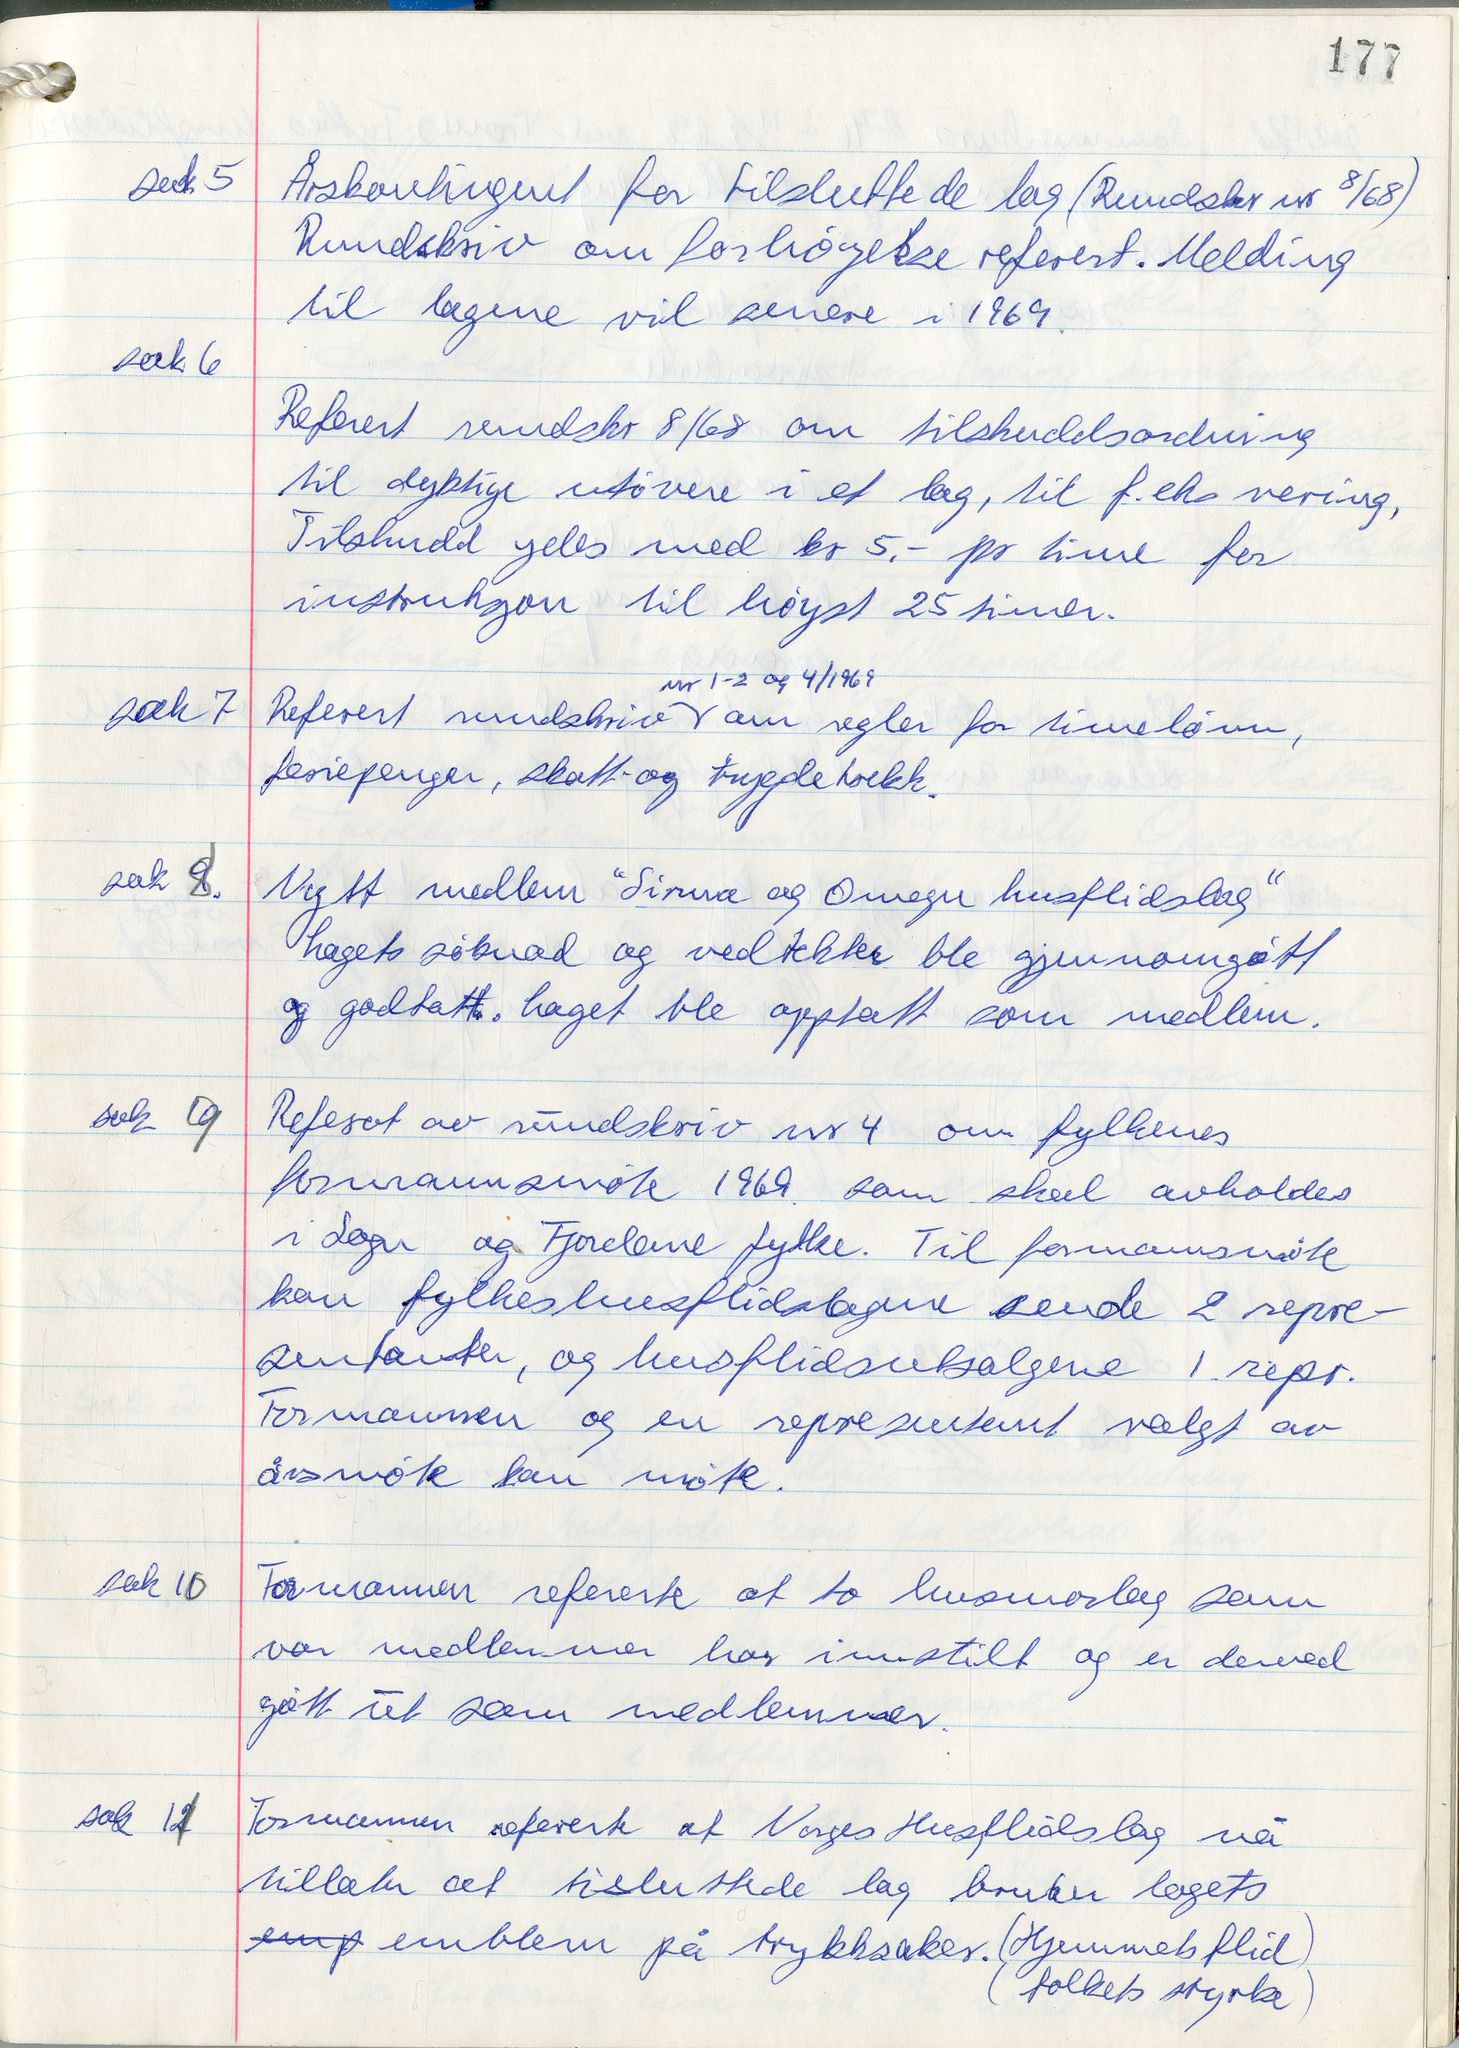 177
sak 5 Årskontingent for tilsluttede lag (Rundskr nr 8/68)
Rundskriv om forhøyelse referert. Melding
til lagene vil senere i 1969.
sak 6
Referert rundskr 8/68 om tilskuddsordning
til dyktige utøvere i et lag, til f.eks veving,
Tilskudd ydes med kr 5,- pr time for
instruksjon til høyst 25 timer.
nr 1-2 og 4/1969
sak 7 Referert rundskriv om regler for timelønn,
feriepenger, skatt- og trygdetrekk.
sak 8. Nytt medlem "Sirma og Omegn husflidslag"
Lagets søknad og vedtekter ble gjennomgått
og godtatt. Laget ble opptatt som medlem.
sak 9 Referat av rundskriv nr 4 om fylkenes
formannsmøte 1969 som skal avholdes
i Sogn og Fjordane fylke. Til formannsmøte
kan fylkeshusflidslagene sende 2 repre-
sentanter, og husflidsutsalgene 1 repr.
Formannen og en representant valgt av
årsmøte kan møte.
sak 10 Formannen refererte at to husmorlag som
var medlemmer har innstilt og er derved
gått ut som medlemmer.
sak 11 Formannen refererte at Norges Husflidslag nå
tillater at tisluttede lag bruker lagets
emp emblem på trykksaker. (Hjemmets flid)
(folkets styrke)